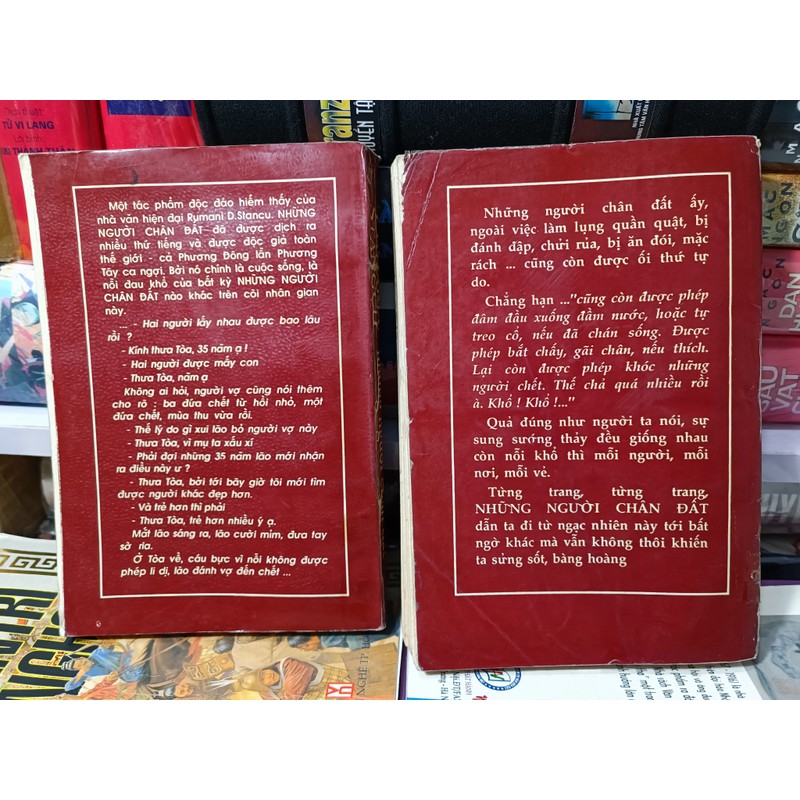 TỪ VI LANG
Lời bình
MẠC
NGÔN
Một tác phẩm độc đáo hiếm thấy của
nhà văn hiện đại Rumani D.Stancu. NHỮNG
NGƯỜI CHÂN ĐẤT đã được dịch ra
nhiều thứ tiếng và được độc giả toàn
thế giới - cả Phương Đông lẫn Phương
Tây ca ngợi. Bởi nó chính là cuộc sống, là
nỗi đau khổ của bất kỳ NHỮNG NGƯỜI
CHÂN ĐẤT nào khác trên cõi nhân gian
này.
... - Hai người lấy nhau được bao lâu
rồi ?
- Kính thưa Tòa, 35 năm ạ !
- Hai người được mấy con
- Thưa Tòa, năm ạ
Không ai hỏi, người vợ cũng nói thêm
cho rõ : ba đứa chết từ hồi nhỏ, một
đứa chết, mùa thu vừa rồi.
- Thế lý do gì xui lão bỏ người vợ này
- Thưa Tòa, vì mụ ta xấu xí
- Phải đợi những 35 năm lão mới nhận
ra điều này ư ?
- Thưa Tòa, bởi tới bây giờ tôi mới tìm
được người khác đẹp hơn.
- Và trẻ hơn thì phải
- Thưa Tòa, trẻ hơn nhiều ý ạ.
Mắt lão sáng ra, lão cười mỉm, đưa tay
sờ ria.
Ở Tòa về, cáu bực vì nỗi không được
phép li dị, lão đánh vợ đến chết ...
Những người chân đất ấy,
ngoài việc làm lụng quần quật, bị
đánh đập, chửi rủa, bị ăn đói, mặc
rách ... cũng còn được ối thứ tự
do.
Chẳng hạn ..."cũng còn được phép
đâm đầu xuống đầm nước, hoặc tự
treo cổ, nếu đã chán sống. Được
phép bắt chấy, gãi chân, nếu thích.
Lại còn được phép khóc những
người chết. Thế chả quá nhiều rồi
à. Khổ ! Khổ !..."
Quả đúng như người ta nói, sự
sung sướng thảy đều giống nhau
còn nỗi khổ thì mỗi người, mỗi
nơi, mỗi vẻ.
Từng trang, từng trang,
NHỮNG NGƯỜI CHÂN ĐẤT
dẫn ta đi từ ngạc nhiên này tới bất
ngờ khác mà vẫn không thôi khiến
ta sửng sốt, bàng hoàng